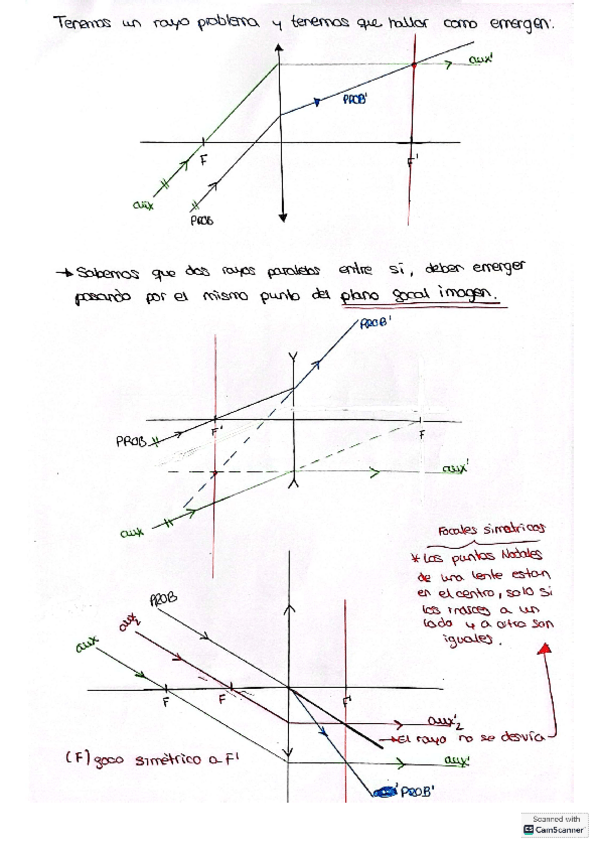 Tenemos un rayo problema y tenemos que hallar como emergen:
aux'
PROB'
F
F'
aux
PROB
→ Sabemos que dos rayos paralelos entre sí, deben emerger
pasando por el mismo punto del plano focal imagen.
PROB'
PROB
F'
F
aux'
aux
Focales simetricos
* Los puntos Nodales
de una lente estan
en el centro, solo si
los indices a un
lado y a otro son
iguales.
PROB
aux2
aux
F
F
F'
aux'2
→ El rayo no se desvía
(F) foco simétrico a F'
aux'
PROB'
Scanned with
CS CamScanner